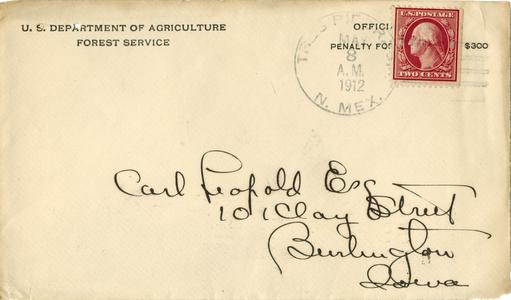 U. S. DEPARTMENT OF AGRICULTURE
FOREST SERVICE
OFFICI
PENALTY FO $300
MAY
8
A.M.
1912
N. MEX.
U.S. POSTAGE
TWO CENTS
Carl Leopold Esq
101 Clay Street
Burlington
Iowa